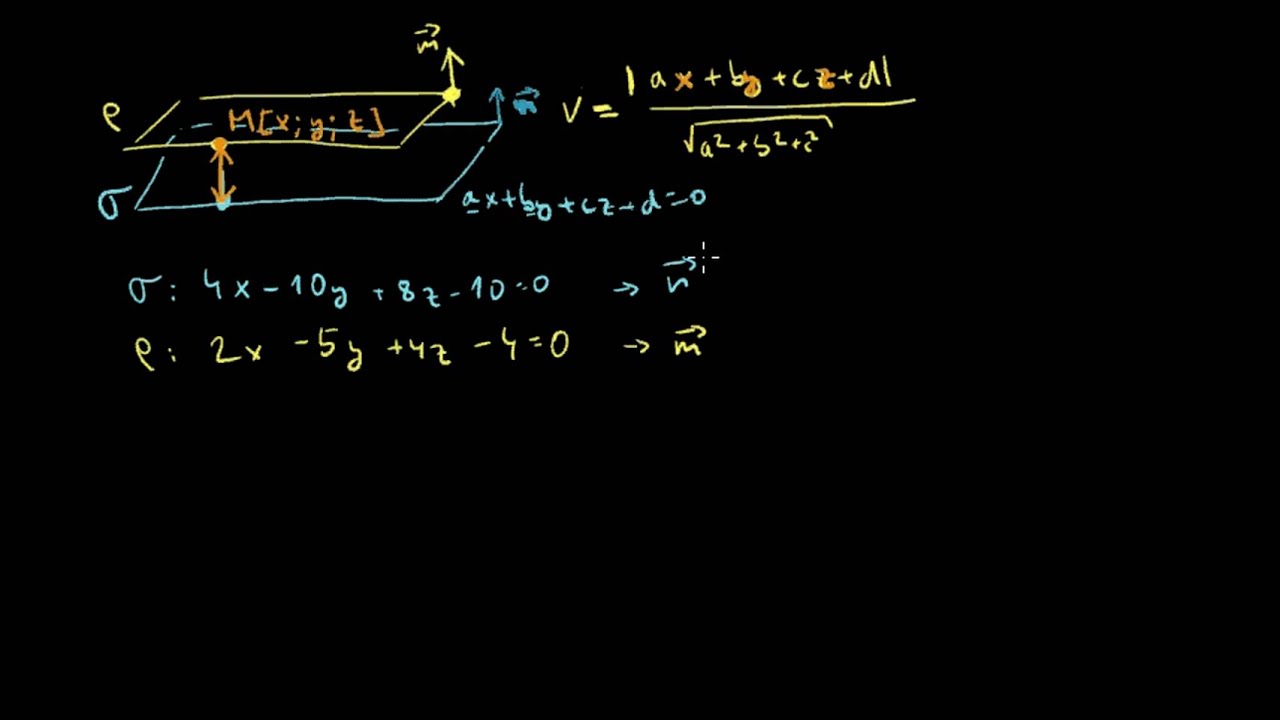 m⃗
ρ
M[x; y; z]
n⃗
v = |ax + by + cz + d| / √(a² + b² + c²)
σ
ax + by + cz + d = 0
σ: 4x - 10y + 8z - 10 = 0 → n⃗
ρ: 2x - 5y + 4z - 4 = 0 → m⃗